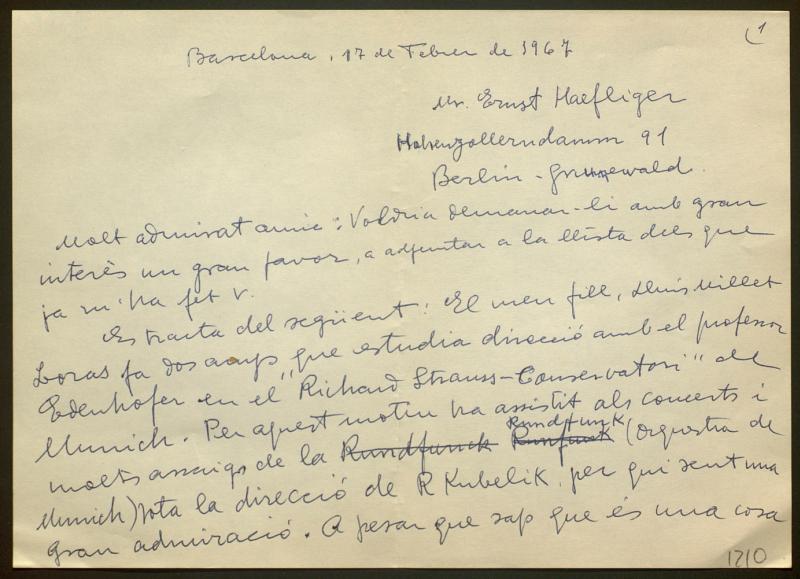 1
Barcelona, 17 de Febrer de 1967
Mr. Ernst Haefliger
Hohenzollerndamm 91
Berlin - Grunewald.
Molt admirat amic: Voldria demanar-li amb gran
interès un gran favor, a adjuntar a la llista dels que
ja m'ha fet V.
Es tracta del següent: El meu fill, Lluís Millet
Loras fa dos anys que estudia direcció amb el professor
Edenhofer en el "Richard Strauss-Conservatori" de
Munich. Per aquest motiu ha assistit als concerts i
molts assaigs de la Rundfunck Runfunck Rundfunk (Orquestra de
Munich) sota la direcció de R Kubelik, per qui sent una
gran admiració. A pesar que sap que és una cosa
1210